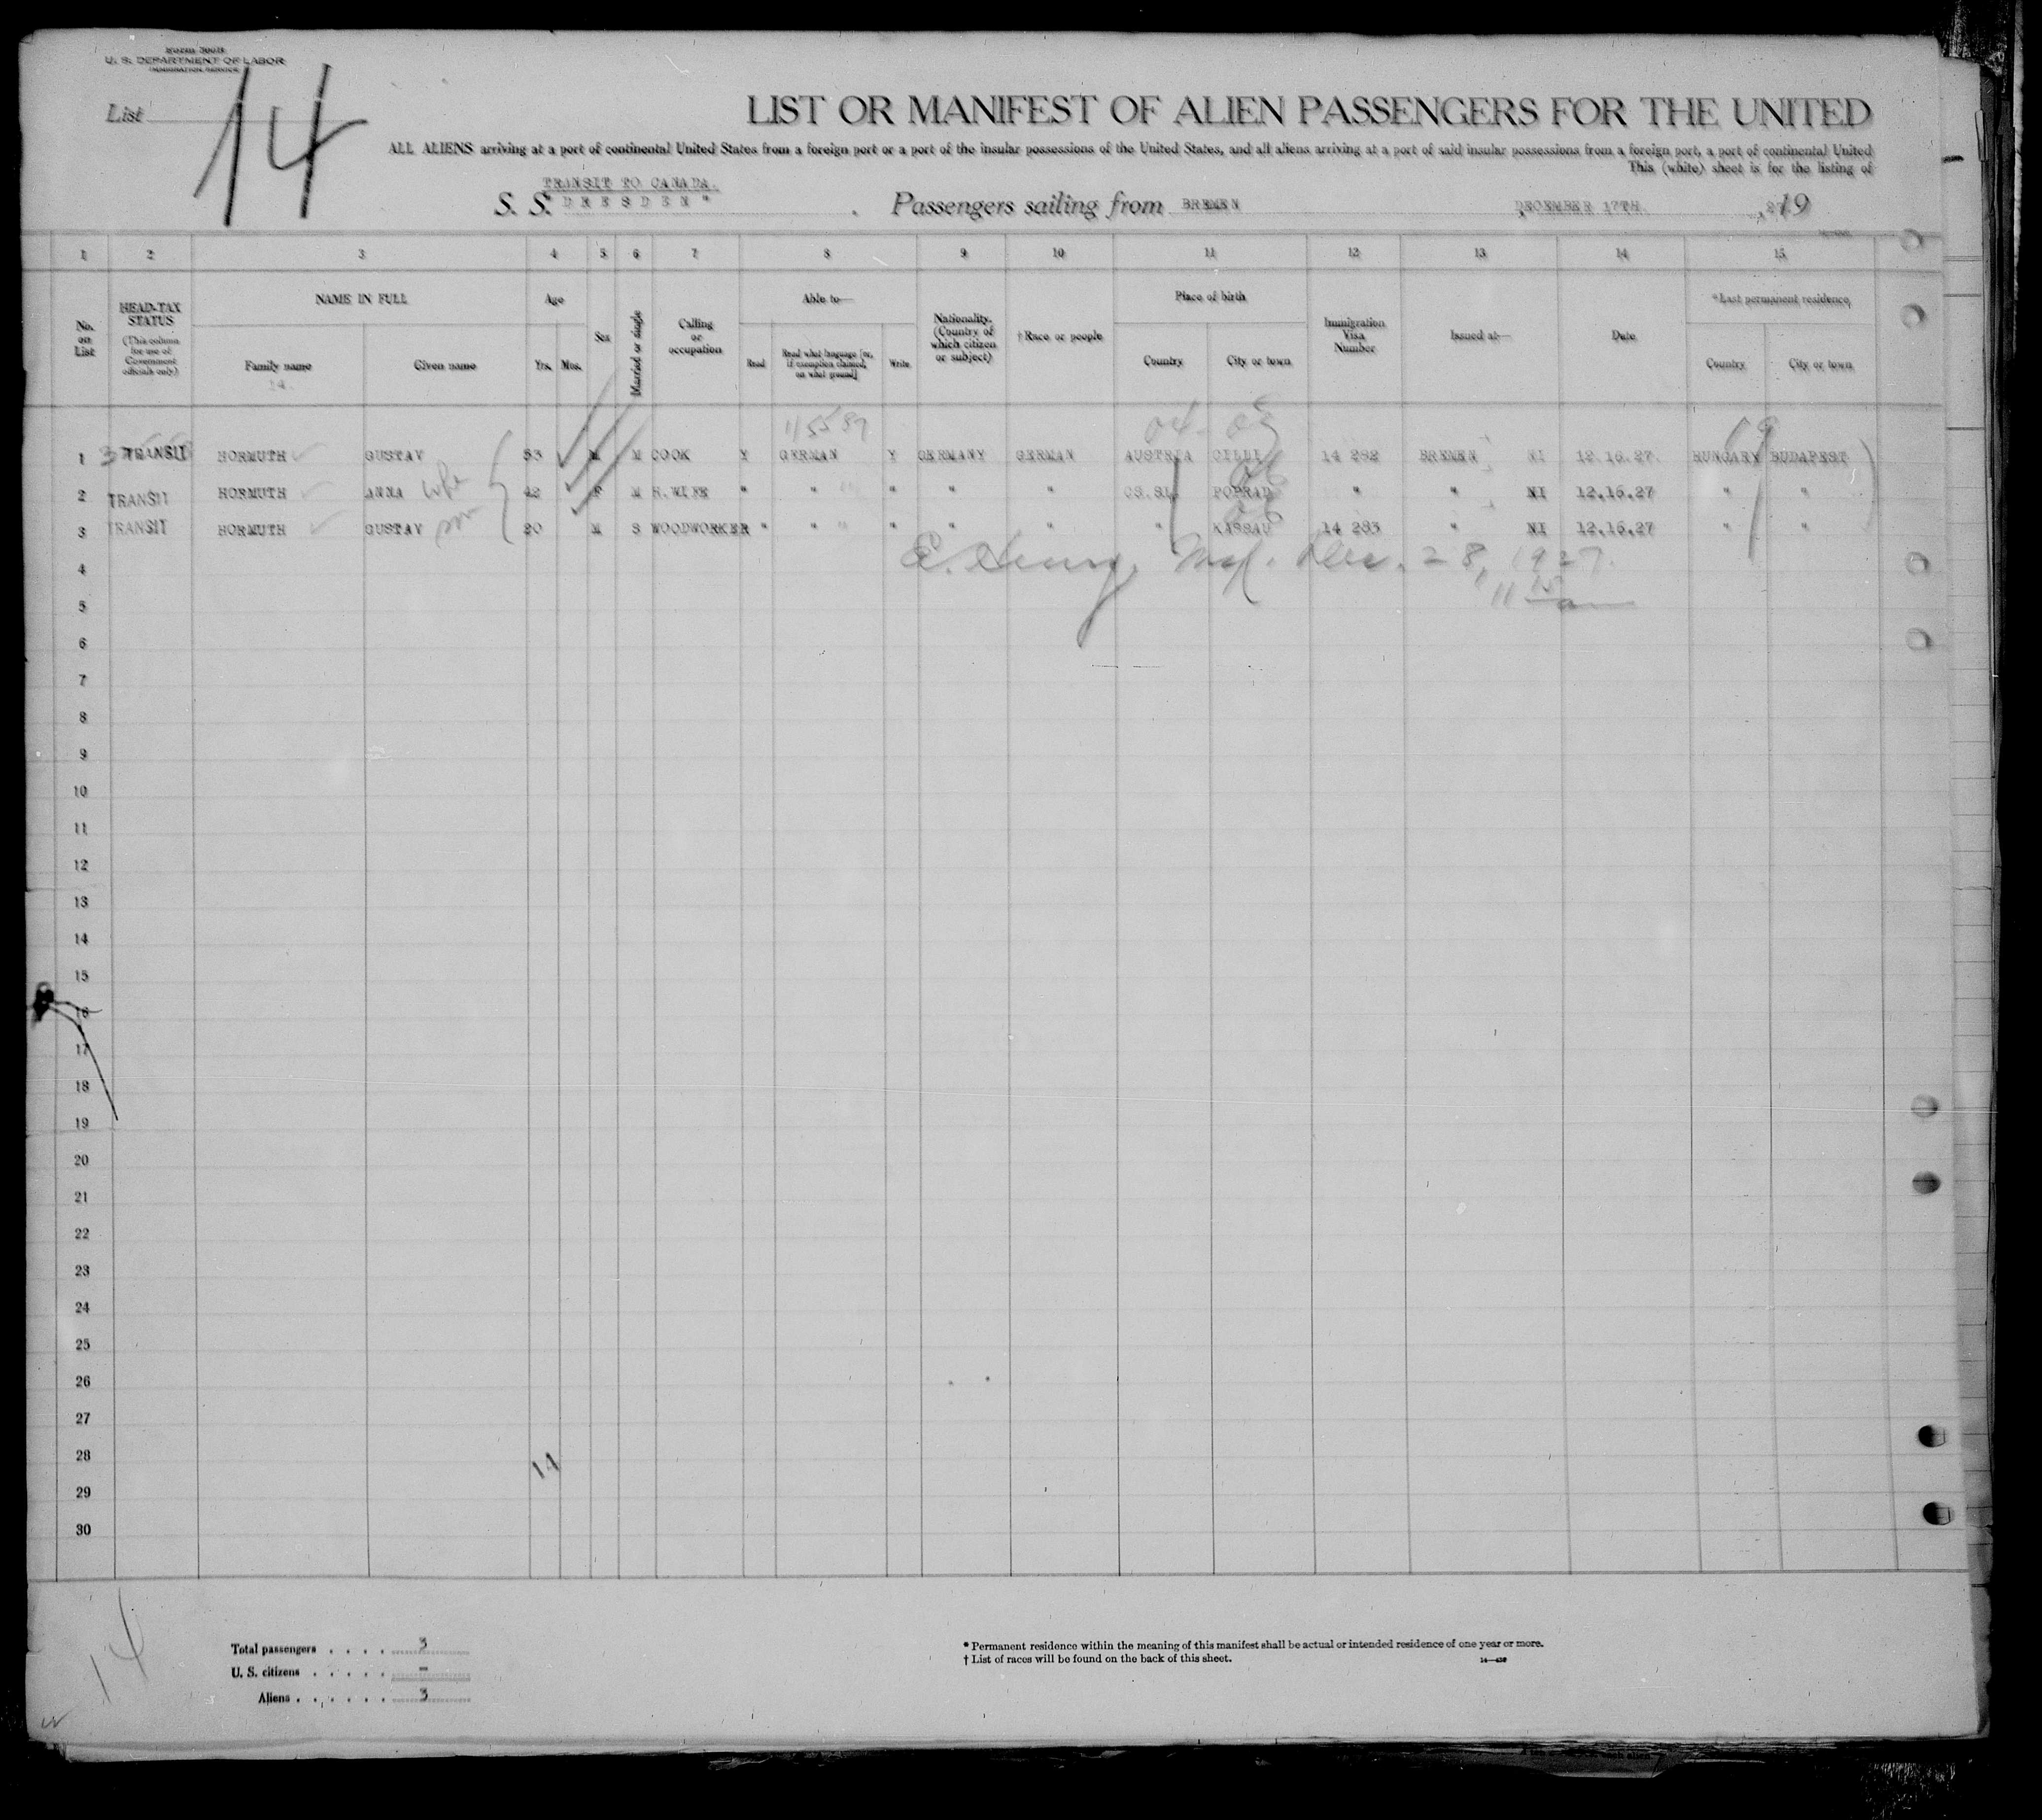 Form 500B
U. S. DEPARTMENT OF LABOR
IMMIGRATION SERVICE
List 14
LIST OR MANIFEST OF ALIEN PASSENGERS FOR THE UNITED
ALL ALIENS arriving at a port of continental United States from a foreign port or a port of the insular possessions of the United States, and all aliens arriving at a port of said insular possessions from a foreign port, a port of continental United
This (white) sheet is for the listing of
TRANSIT TO CANADA.
S. S. "DRESDEN" Passengers sailing from BREMEN DECEMBER 17TH. , 1927
1 2 3 4 5 6 7 8 9 10 11 12 13 14 15
No. on List
HEAD-TAX STATUS (This column for use of Government officials only)
NAME IN FULL Family name Given name
14
Age Yrs. Mos.
Sex
Married or single
Calling or occupation
Able to— Read Read what language [or, if exemption claimed, on what ground] Write
Nationality. (Country of which citizen or subject)
† Race or people
Place of birth Country City or town
Immigration Visa Number
Issued at—
Date
*Last permanent residence Country City or town
1 TRANSIT HORMUTH GUSTAV 53 M M COOK Y GERMAN Y GERMANY GERMAN AUSTRIA CILLI 14 282 BREMEN NI 12.16.27. HUNGARY BUDAPEST
2 TRANSIT HORMUTH ANNA wife 42 F M H.WIFE " " " " " CS.SL. POPRAD " " NI 12.16.27 " "
3 TRANSIT HORMUTH GUSTAV son 20 M S WOODWORKER " " " " " " KASSAU 14 283 " NI 12.16.27 " "
4 Dec. 28, 1927.
5 11 15 am
6
7
8
9
10
11
12
13
14
15
16
17
18
19
20
21
22
23
24
25
26
27
28 14
29
30
14
Total passengers . . . . 3
U. S. citizens . . . . . –
Aliens . . . . . . 3
* Permanent residence within the meaning of this manifest shall be actual or intended residence of one year or more.
† List of races will be found on the back of this sheet.